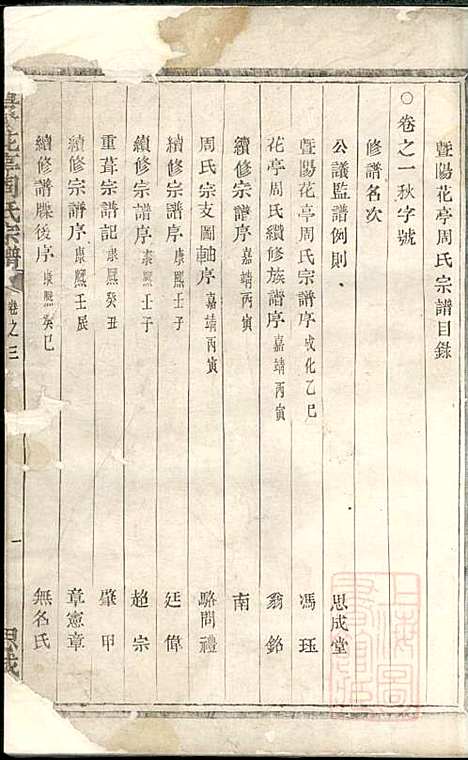 暨陽花亭周氏宗譜目錄
○卷之一秋字號
修譜名次
公議監譜例則 思成堂
暨陽花亭周氏宗譜序 成化乙巳 馮珏
花亭周氏續修族譜序 嘉靖丙寅 翁銘
續修宗譜序 嘉靖丙寅 南
周氏宗支圖軸序 嘉靖丙寅 駱問禮
續修宗譜序 康熙壬子 廷偉
續修宗譜序 康熙壬子 超宗
重葺宗譜記 康熙癸丑 肇甲
續修宗譜序 康熙壬辰 章憲章
續修譜牒後序 康熙癸巳 無名氏
花亭周氏宗譜 卷之三 一 思成
上海圖書館藏